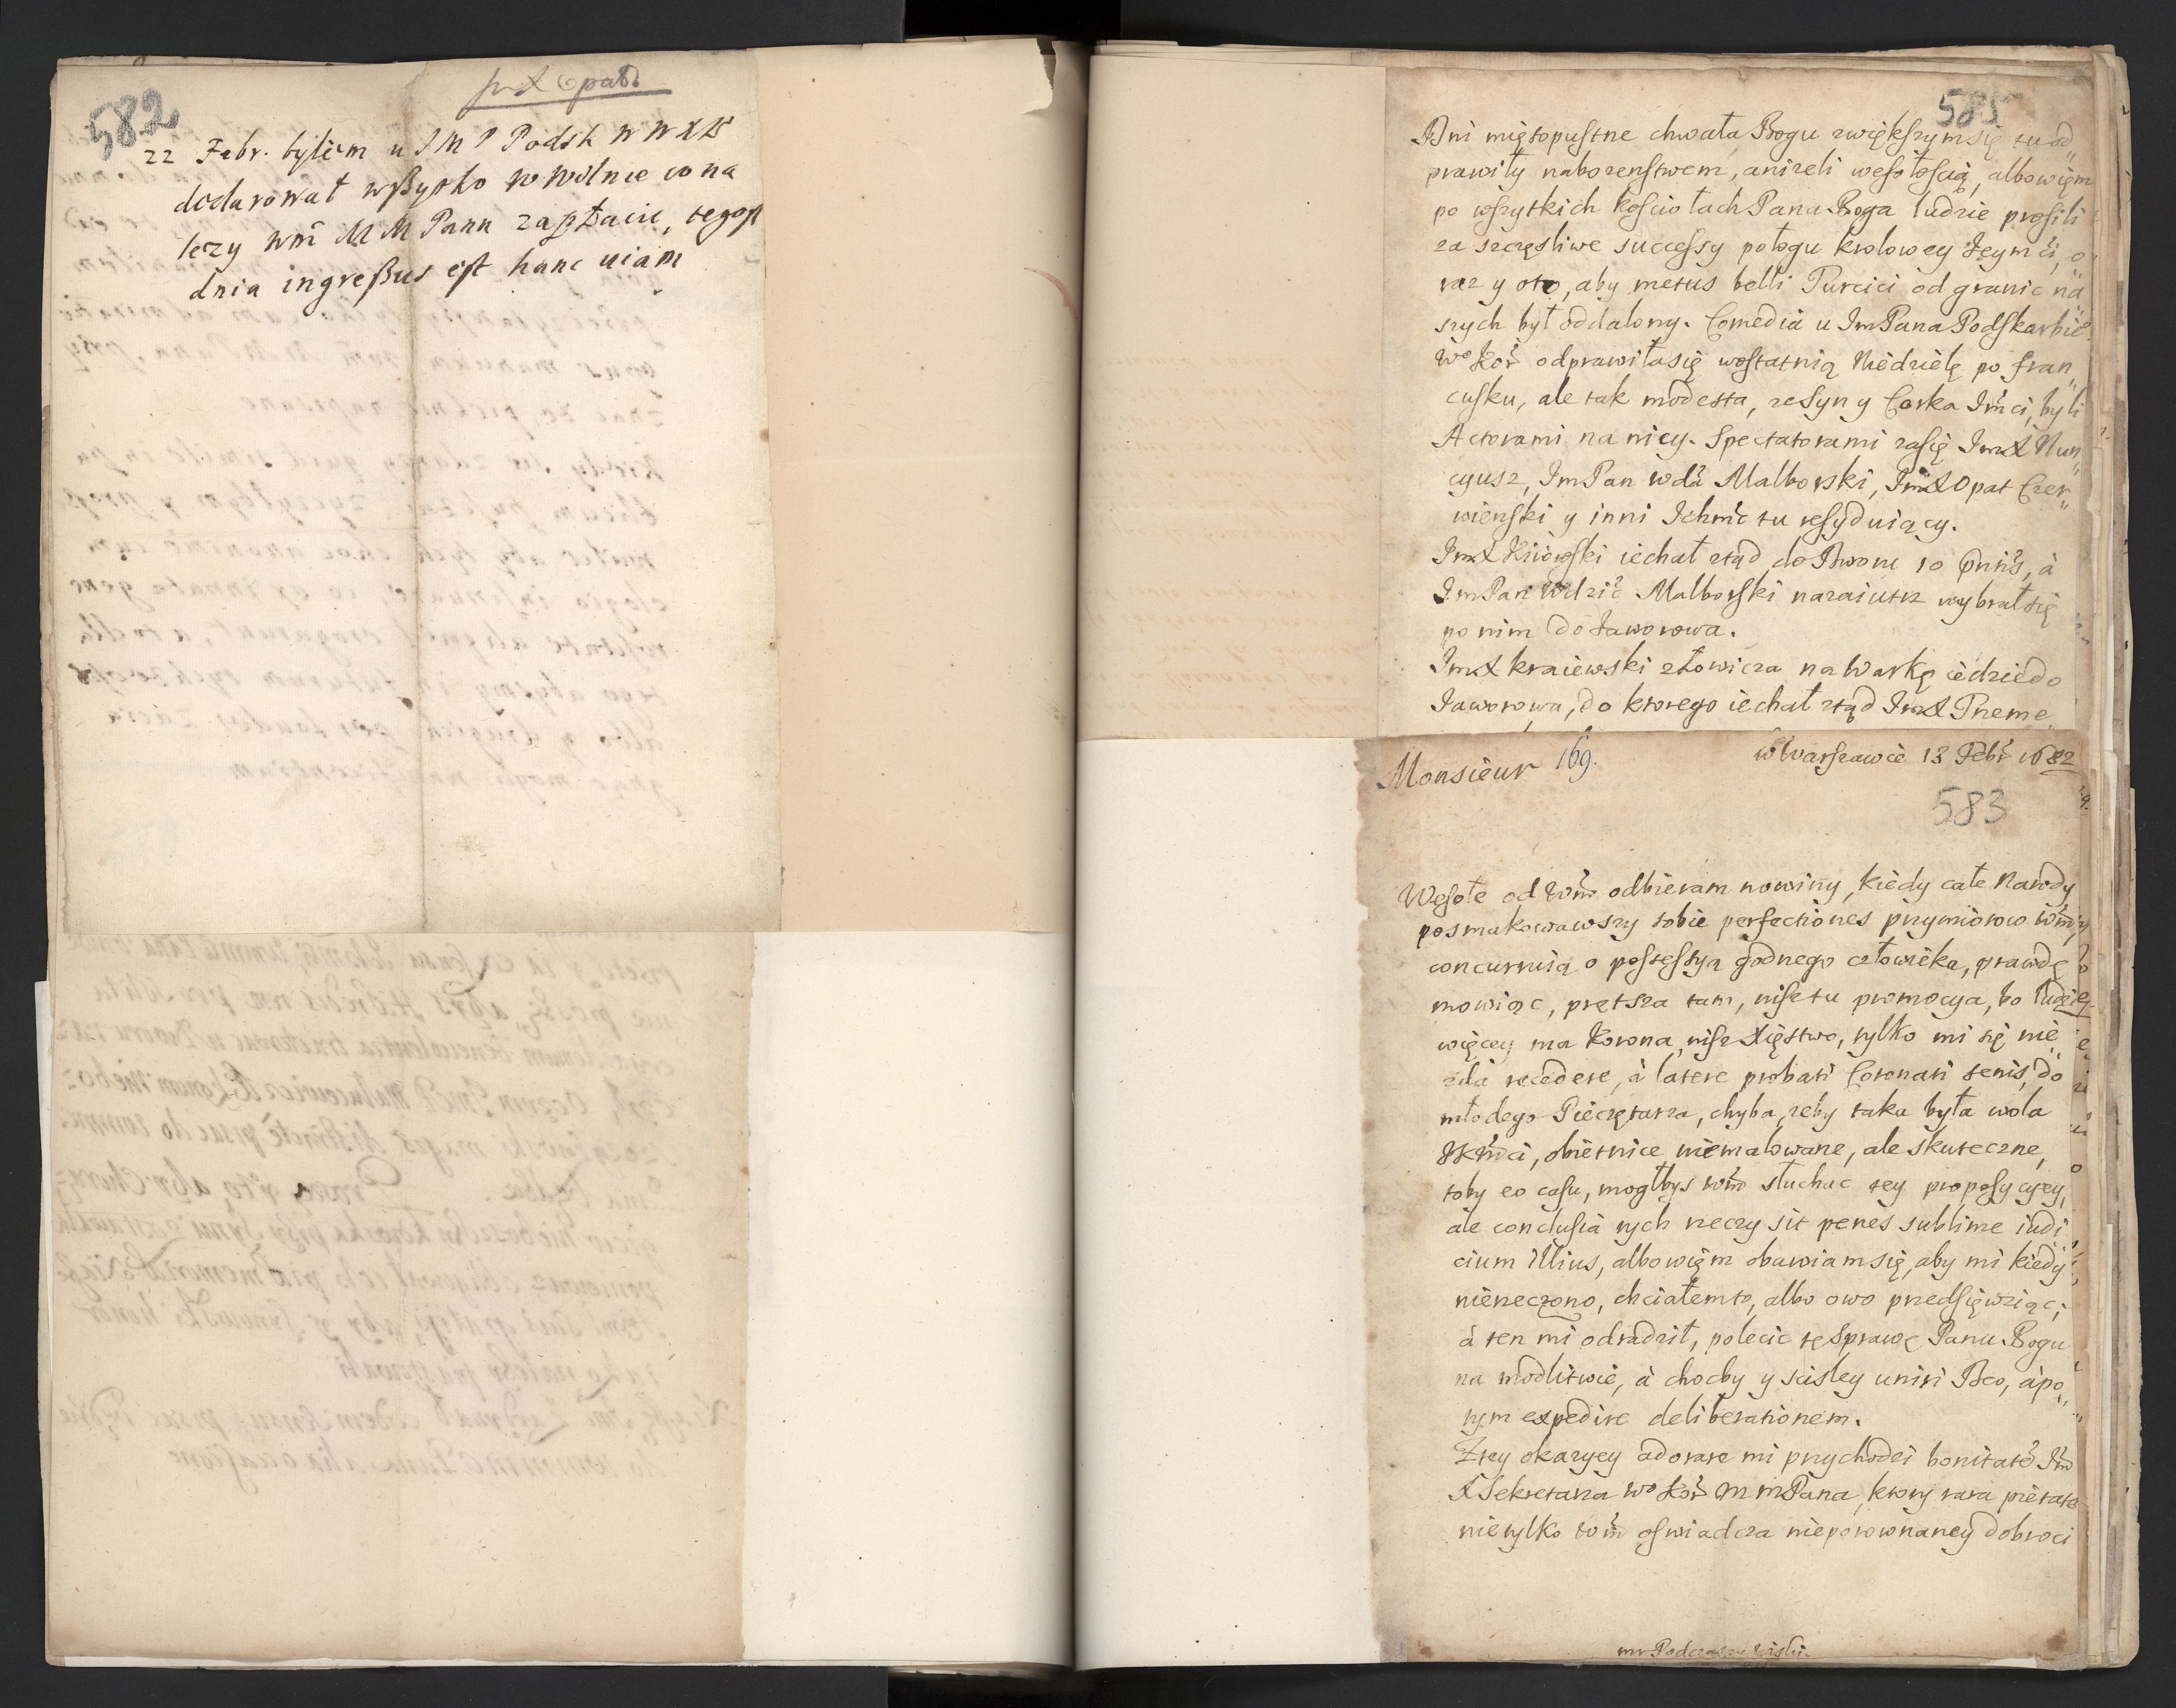 582
22 Febr. byłem u JMP Podsk WWXLit
declarował wszystko w Wilnie co na
leży wm̃ MM Panu zapłacić, tegoż
dnia ingressus est hanc uiam
585
Dni mięsopustne chwała Bogu zwiększym się tu od„
prawiły naborenstwem, anizeli wesołoscią, albowięm
po wszytkich kosciołach Pana Boga ludzie prosili
za szczęsliwe successy połogu krolowey Jeym̃ci, o„
raz y oto, aby metus belli Turcici od granic na„
szych był oddalony. Comedia u Jm Pana Podskarbie„
wo Kor̃ odprawiła się wostatnią Niedzielę po fran„
cusku, ale tak modesta, ze Syn y Corka Jm̃ci, byli
Actorami na niey. Spectatorami zasię JmX Nun„
cyusz, Jm Pan Wda Malborski, JmX Opat Czer„
wienski y inni Ichm̃c tu resyduiący.
JmX Kiiowski iechał ztąd do Dworu 10 pñtis, à
Jm Pan Wdzic Malborski nazaiutrz wybrał się
po nim do Jaworowa.
JmX kraiewski złowicza na Warkę iedzie do
Jaworowa, do ktorego iechał ztąd JmX Przeme„
Monsieur 169. w Warszawie 13 Febr̃ 1682
583
Wesołe od Wm̃ odbieram nowiny, kiedy całe Narody
posmakowawszy sobie perfectiones przymiotow Wm̃,
concurruią o possessyą godnego człowieka, prawdę
mowiąc, prętsza tam, nisz tu promocya, bo ludzi
więcey ma Korona, nisz Xięstwo, tylko mi się nie
zda recedere, à latere probati Coronati senis, do
młodego Pieczętarza, chyba, zeby taka była wola
JKm̃ci, obietnice niemalowane, ale skuteczne,
toby eo casu, mogłbys Wm̃ słuchac tey propozycyey,
ale conclusia tych rzeczy sit penes sublime iudi„
cium Illius, albowięm obawiam się, aby mi kiedy
nierzeczono, chciałem to, albo owo przedsięwziąc,
à ten mi odradził, polecic tę sprawę Panu Bogu
na modlitwie, à chocby y scisley uniri Deo, à po„
tym expedire deliberationem.
Ztey okazyey adorare mi przychodzi bonitatem Jm̃
X Sekretarza Wo Kor̃ M m Pana, ktory rara pietate
nietylko Wm̃ oswiadcza nieporownaney dobroci